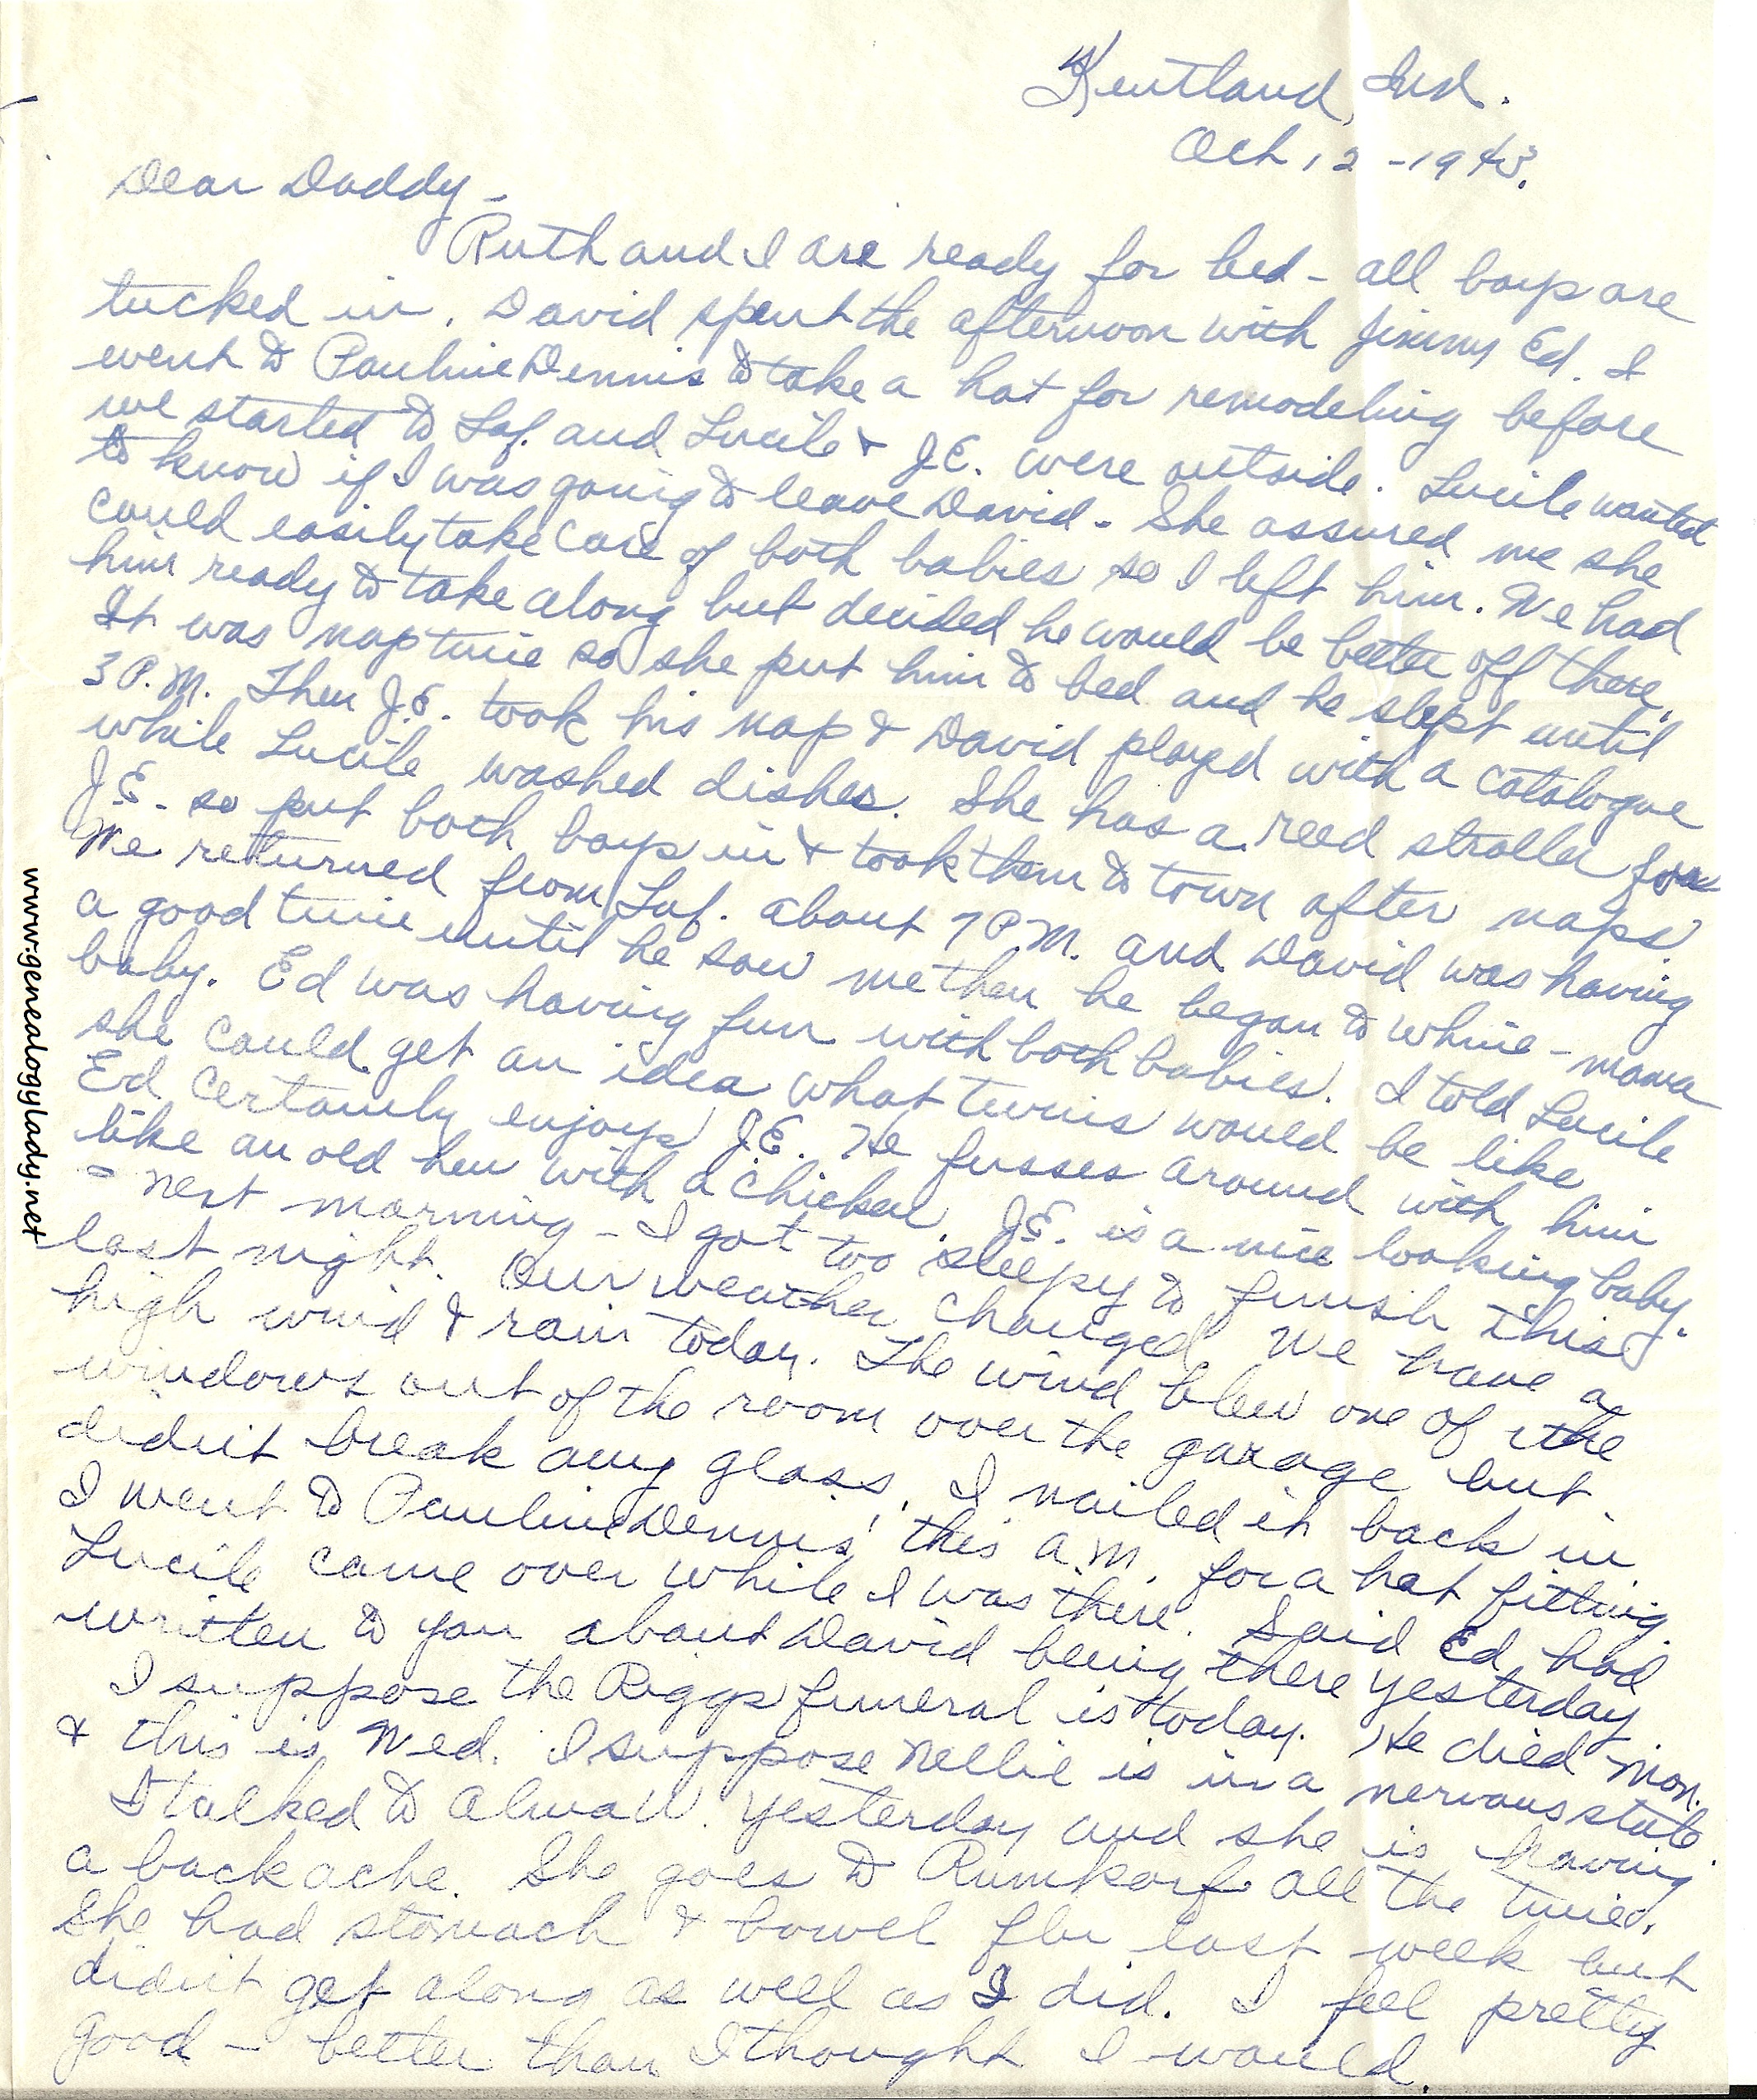 Kentland, Ind.
Oct 12 - 1943.
Dear Daddy -
Ruth and I are ready for bed - all boys are
tucked in. David spent the afternoon with Jimmy Ed. I
went to Pauline Dennis to take a hat for remodeling before
we started to Laf. and Lucile & J.E. were outside. Lucile wanted
to know if I was going to leave David - She assured me she
could easily take care of both babies so I left him. We had
him ready to take along but decided he would be better off there.
It was nap time so she put him to bed and he slept until
3 P.M. Then J.E. took his nap & David played with a catalogue
while Lucile washed dishes. She has a reed stroller for
J.E. so put both boys in & took them to town after naps.
We returned from Laf. about 7 P.M. and David was having
a good time until he saw me then he began to whine - mama
baby. Ed was having fun with both babies. I told Lucile
she could get an idea what twins would be like.
Ed certainly enjoys J.E. He fusses around with him
like an old hen with a chicken. J.E. is a nice looking baby.
= Next morning - I got too sleepy to finish this
last night. Our weather changed. We have a
high wind & rain today. The wind blew one of the
windows out of the room over the garage but
didn't break any glass. I nailed it back in
I went to Pauline Dennis' this a.m. for a hat fitting.
Lucile came over while I was there. Said Ed had
written to you about David being there yesterday
I suppose the Riggs funeral is today. He died Mon.
& this is Wed. I suppose Nellie is in a nervous state
I talked to Alma W. yesterday and she is having
a back ache. She goes to Rumkorf all the time.
She had stomach & bowel flu last week but
didn't get along as well as I did. I feel pretty
good - better than I thought I would.
www.genealogylady.net